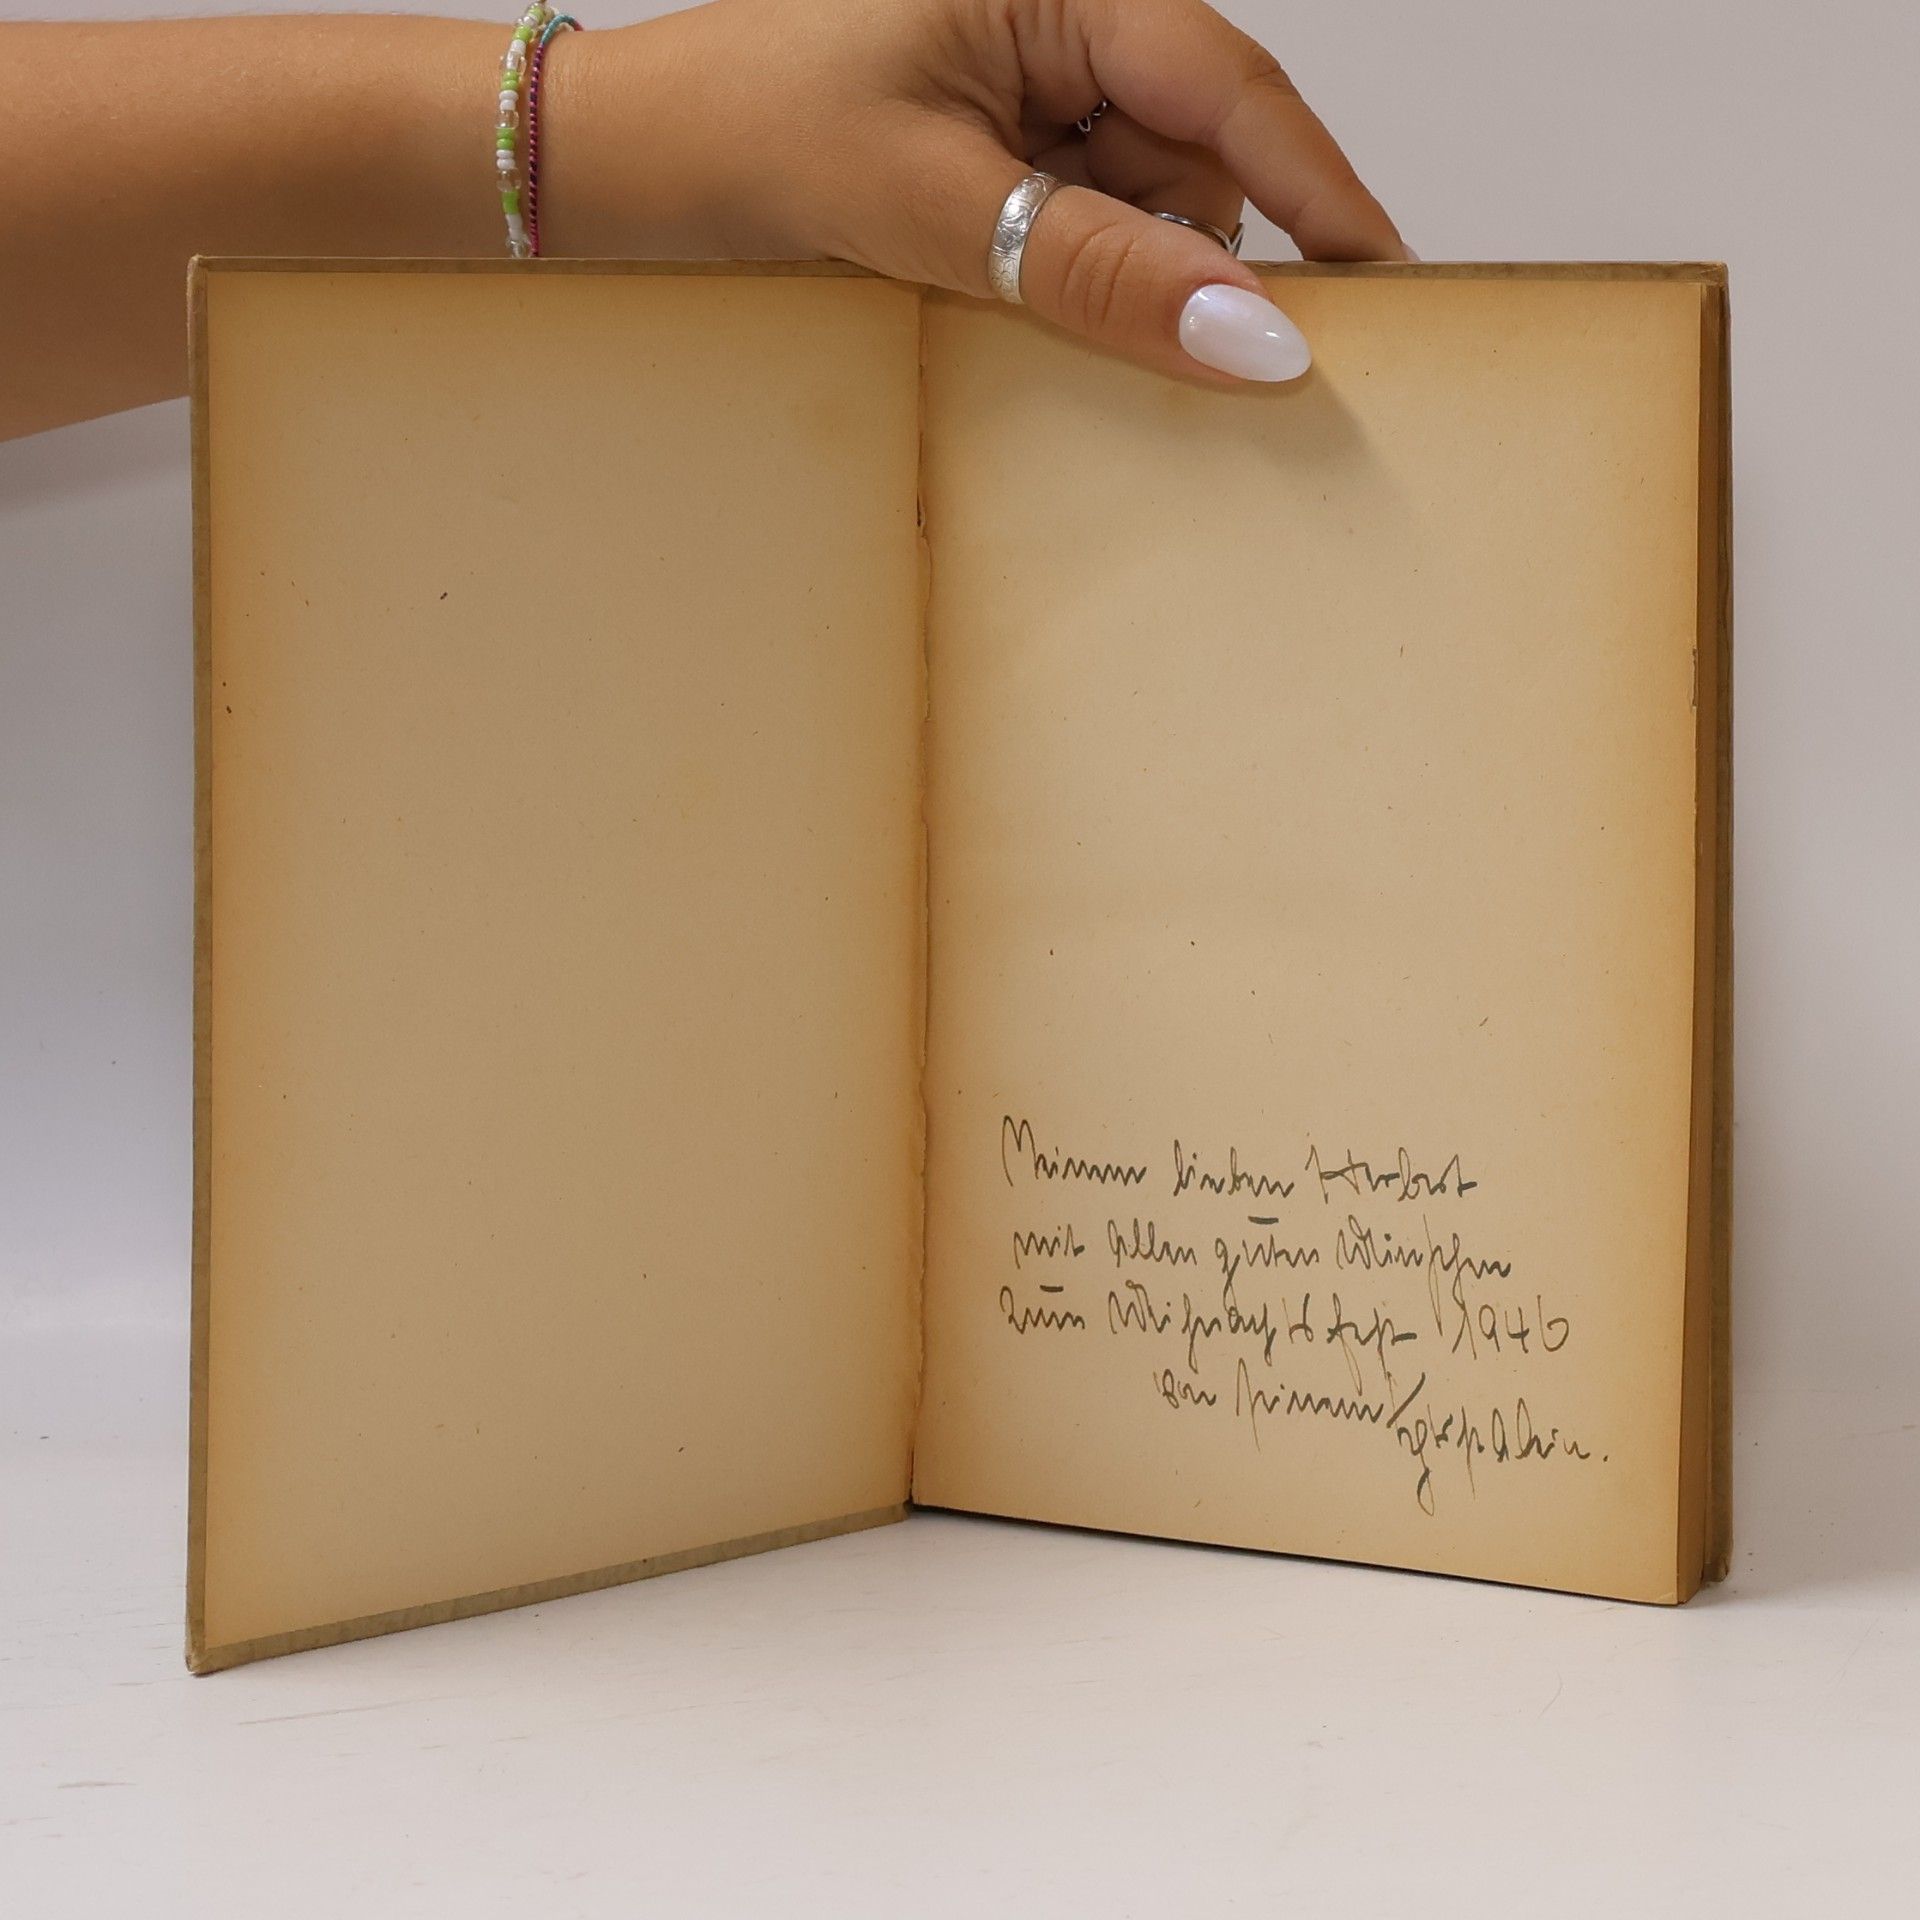 Meinem lieben Herbert
mit allen guten Wünschen
zum Weihnachtsfest 1946
von seinem